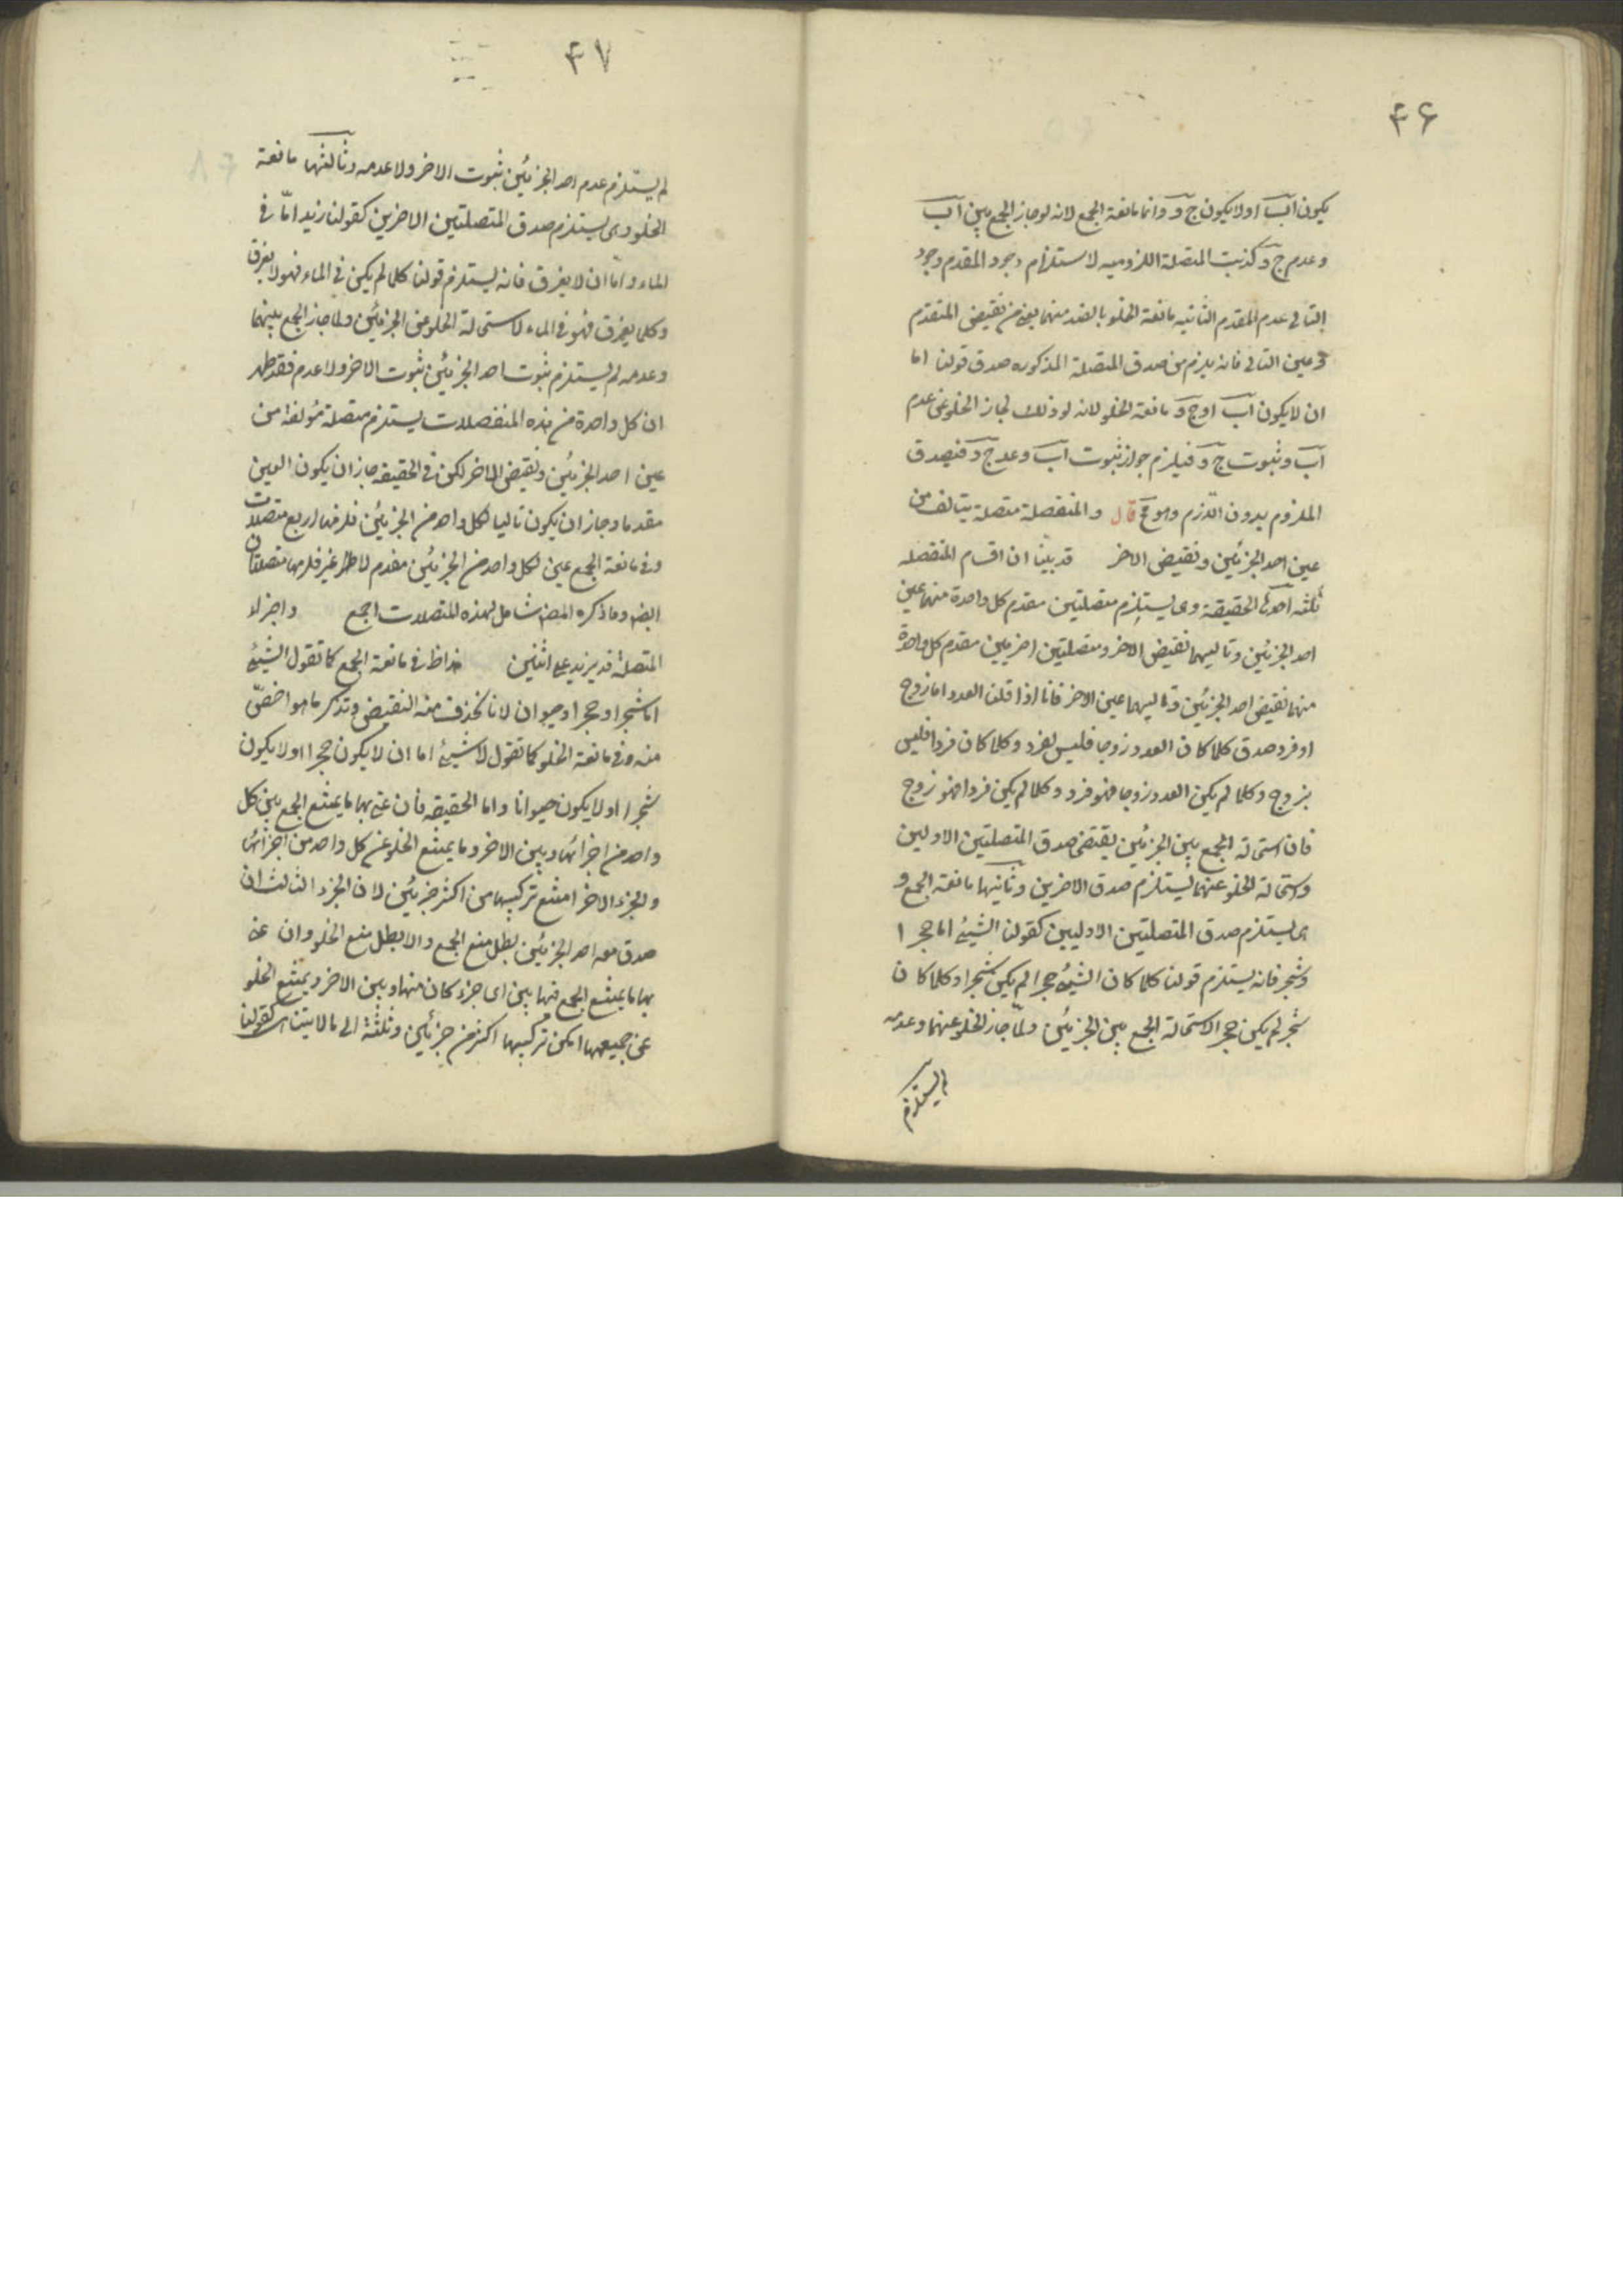 ۴۶
يكون آب اولا يكون ج د وانما مانعة الجمع لانه لو جاز الجمع بين آب
وعدم ج د كذبت المتصلة اللزوميه لاستلزام وجود المقدم وجود
التالى عدم المقدم الثانيه مانعة الخلو بالضد منهما يعنى من نقيض المتقدم
وعين التالى فانه يلزم من صدق المتصلة المذكوره صدق قولنا اما
ان لا يكون آب او ج د مانعة الخلو لانه لو ذلك لجاز الخلو عن عدم
آب وثبوت ج د فيلزم جواز ثبوت آب وعدم ج د فيصدق
الملزوم بدون اللازم وهو مح قال والمنفصلة متصلة يتالف من
عين احد الجزئين ونقيض الاخر قد بينا ان اقسام المنفصله
ثلثه احدها الحقيقة وهى يستلزم متصلتين مقدم كل واحدة منهما عين
احد الجزئين وتاليهما نقيض الاخر ومتصلتين اخريين مقدم كل واحدة
منهما نقيض احد الجزئين وتاليهما عين الاخر فانا اذا قلنا العدد اما زوج
او فرد صدق كلما كان العدد زوجا فليس بفرد وكلما كان فردا فليس
بزوج وكلما لم يكن العدد زوجا فهو فرد وكلما لم يكن فردا فهو زوج
فان استحالة الجمع بين الجزئين يقتضى صدق المتصلتين الاوليين
واستحالة الخلو عنهما يستلزم صدق الاخرين وثانيها مانعة الجمع و
هى يستلزم صدق المتصلتين الاوليين كقولنا الشيئ اما حجر ا
وشجر فانه يستلزم قولنا كلما كان الشيئ حجرا لم يكن شجرا وكلما كان
شجر لم يكن حجرا لاستحالة الجمع بين الجزئين ولمّا جاز الخلو عنهما وعدمه
لم يستلزم
۴۷
لم يستلزم عدم احد الجزئين ثبوت الاخر ولا عدمه وثالثها مانعة
الخلو وهى يستلزم صدق المتصلتين الاخرين كقولنا زيد امّا فى
الماء واما ان لا يغرق فانه يستلزم قولنا كلما لم يكن فى الماء فهو لا يغرق
وكلما يغرق فهو فى الماء لاستحالة الخلو عن الجزئين ولما جاز الجمع بينهما
وعدمه لم يستلزم ثبوت احد الجزئين ثبوت الاخر ولا عدم فقد ظهر
ان كل واحدة من هذه المنفصلات يستلزم متصلة مؤلفة من
عين احد الجزئين ونقيض الاخر لكن فى الحقيقه جاز ان يكون العين
مقدما وجاز ان يكون تاليا لكل واحد من الجزئين فلزمها اربع متصلات
وفى مانعة الجمع عين لكل واحد من الجزئين مقدم لا غير فلزمها متصلتان
ايضا وما ذكره المص شامل لهذه المتصلات اجمع واجزاء
المتصلة قد يزيد على اثنين فى مانعة الجمع كما تقول الشيئ
اما شجر او حجر او حيوان لانا نحذف منه النقيض وتذكر ما هو اخصّ
منه وفى مانعة الخلو كما تقول لا شيئ اما ان لا يكون حجرا او لا يكون
شجرا او لا يكون حيوانا واما الحقيقه فان عنى بها ما يمتنع الجمع بين كل
واحد من اجزائها وبين الاخر وما يمتنع الخلو عن كل واحد من اجزائها
والجزء الاخر امتنع تركيبها من اكثر جزئين لان الجزء الثالث ان
صدق معه احد الجزئين بطل منع الجمع والا بطل منع الخلو وان عنى
بها ما يمتنع الجمع فيها بين اى جزء كان منها وبين الاخر ويمتنع الخلو
عن جميعها امكن تركيبها اكثر من جزئين وثلثة الى ما لا يتناهى كقولنا